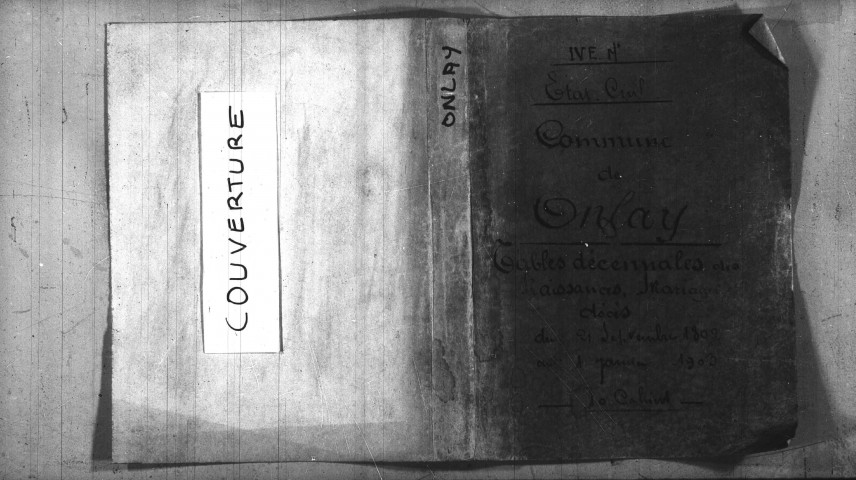 COUVERTURE
ONLAY
IVE N°
Etat-Civil
Commune
de
Onlay
Tables décennales des
Naissances, Mariages
décès
du 21 Septembre 1802
au 1 janvier
10 Cahiers